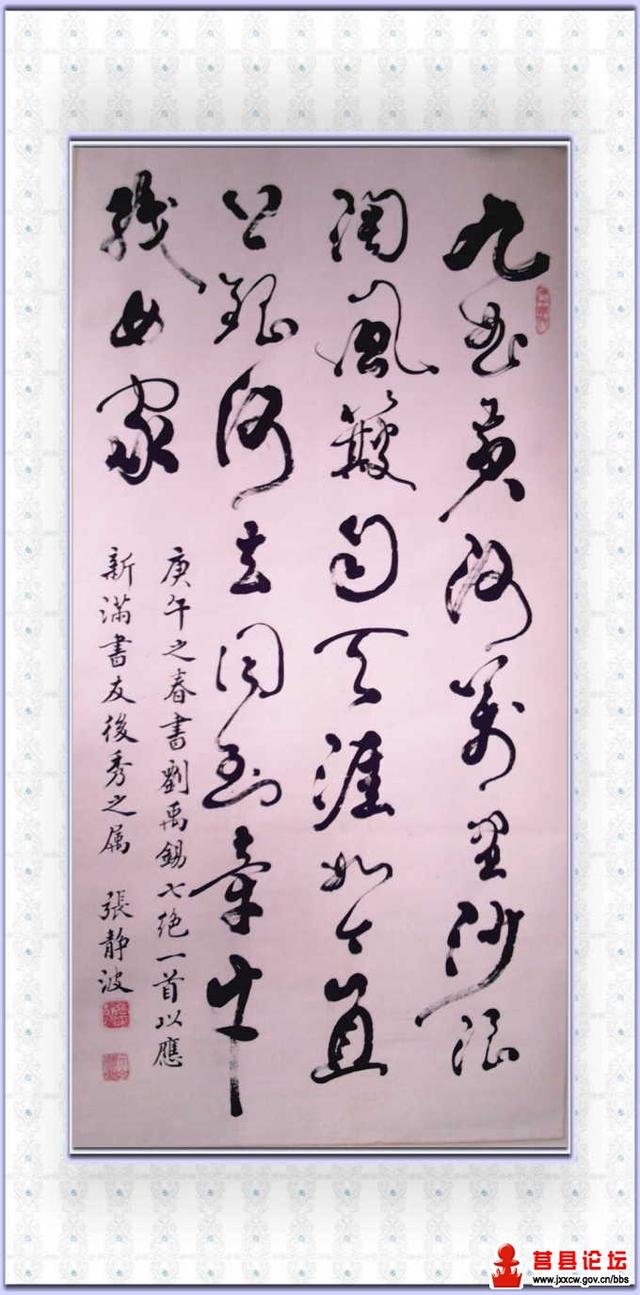 九曲黄河萬里沙浪
淘風簸自天涯如今直
上銀河去同到牵牛
織女家
庚午之春書劉禹錫七绝一首以應
新滿書友後秀之属 張静波
莒县论坛
www.jxxcw.gov.cn/bbs